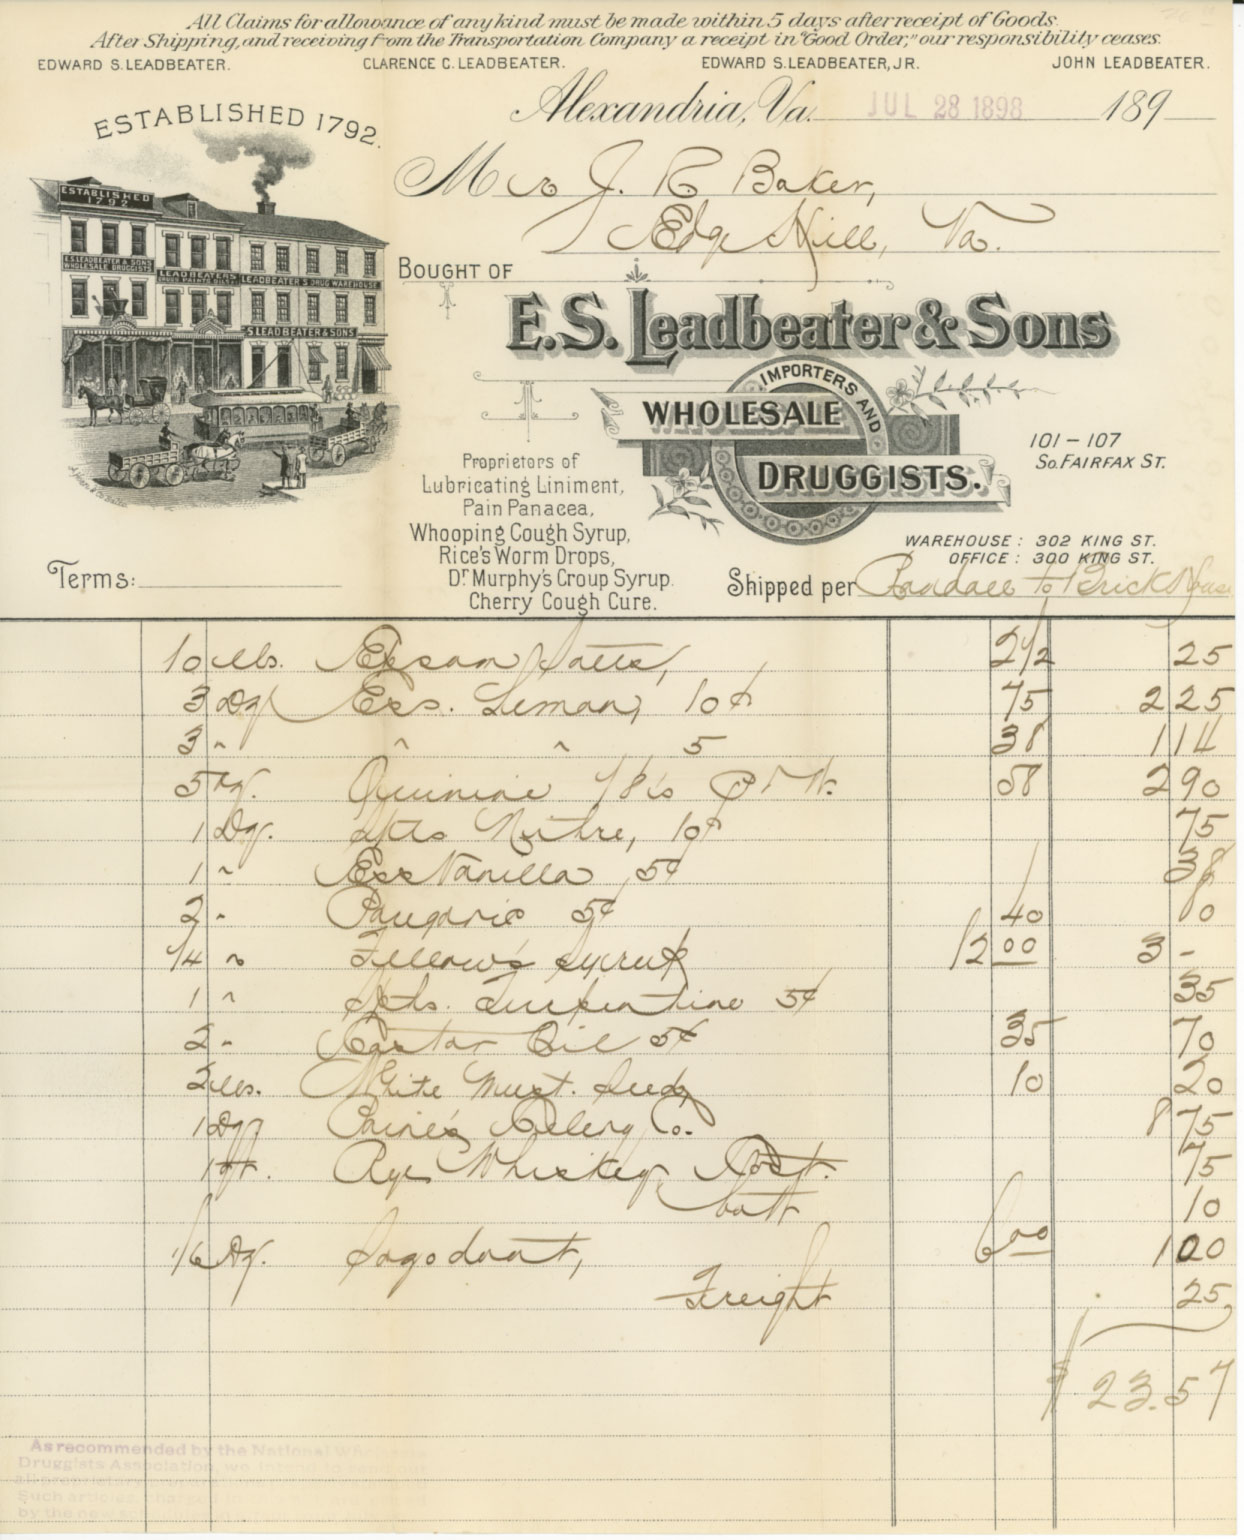 All Claims for allowance of any kind must be made within 5 days after receipt of Goods.
After Shipping, and receiving from the Transportation Company a receipt in "Good Order," our responsibility ceases.
EDWARD S. LEADBEATER. CLARENCE C. LEADBEATER. EDWARD S. LEADBEATER, JR. JOHN LEADBEATER.
Alexandria, Va. JUL 28 1898 189
ESTABLISHED 1792.
ESTABLISHED
1792
E.S. LEADBEATER & SONS
WHOLESALE DRUGGISTS
LEADBEATER'S
LEADBEATER'S DRUG WAREHOUSE
S LEADBEATER & SONS
M J. R. Baker,
Edge Hill, Va.
BOUGHT OF
E.S. Leadbeater & Sons
IMPORTERS AND
WHOLESALE
DRUGGISTS.
101 – 107
So. FAIRFAX ST.
Proprietors of
Lubricating Liniment,
Pain Panacea,
Whooping Cough Syrup,
Rice's Worm Drops,
Dr Murphy's Croup Syrup.
Cherry Cough Cure.
WAREHOUSE: 302 KING ST.
OFFICE: 300 KING ST.
Terms:
Shipped per Randall to Brick House
10 lbs. Epsom Salts, 2 1/2 25
3 Dz Ess. Lemon, 10¢ 75 2 25
3 " " " 5 38 1 14
5 Quinine 1/8's P & W. 58 2 90
1 Dz. Spts Nitre, 10¢ 75
1 " Ess Vanilla 5¢ 38
2 " Paregoric 5¢ 40 80
1/4 " Fellow's Syrup 12 00 3 -
1 " Spts. Turpentine 5¢ 35
2 " Castor Oil 5¢ 35 70
2 lbs. White Must. Seed 10 20
1 Paine's Celery Co. 8 75
1 Rye Whiskey 75
bott 10
1/6 Dz. Sozodont, 6 00 1 00
Freight 25
$ 23.57
As recommended by the National
Druggists Association, we intend to
Such articles, charged in
by the new